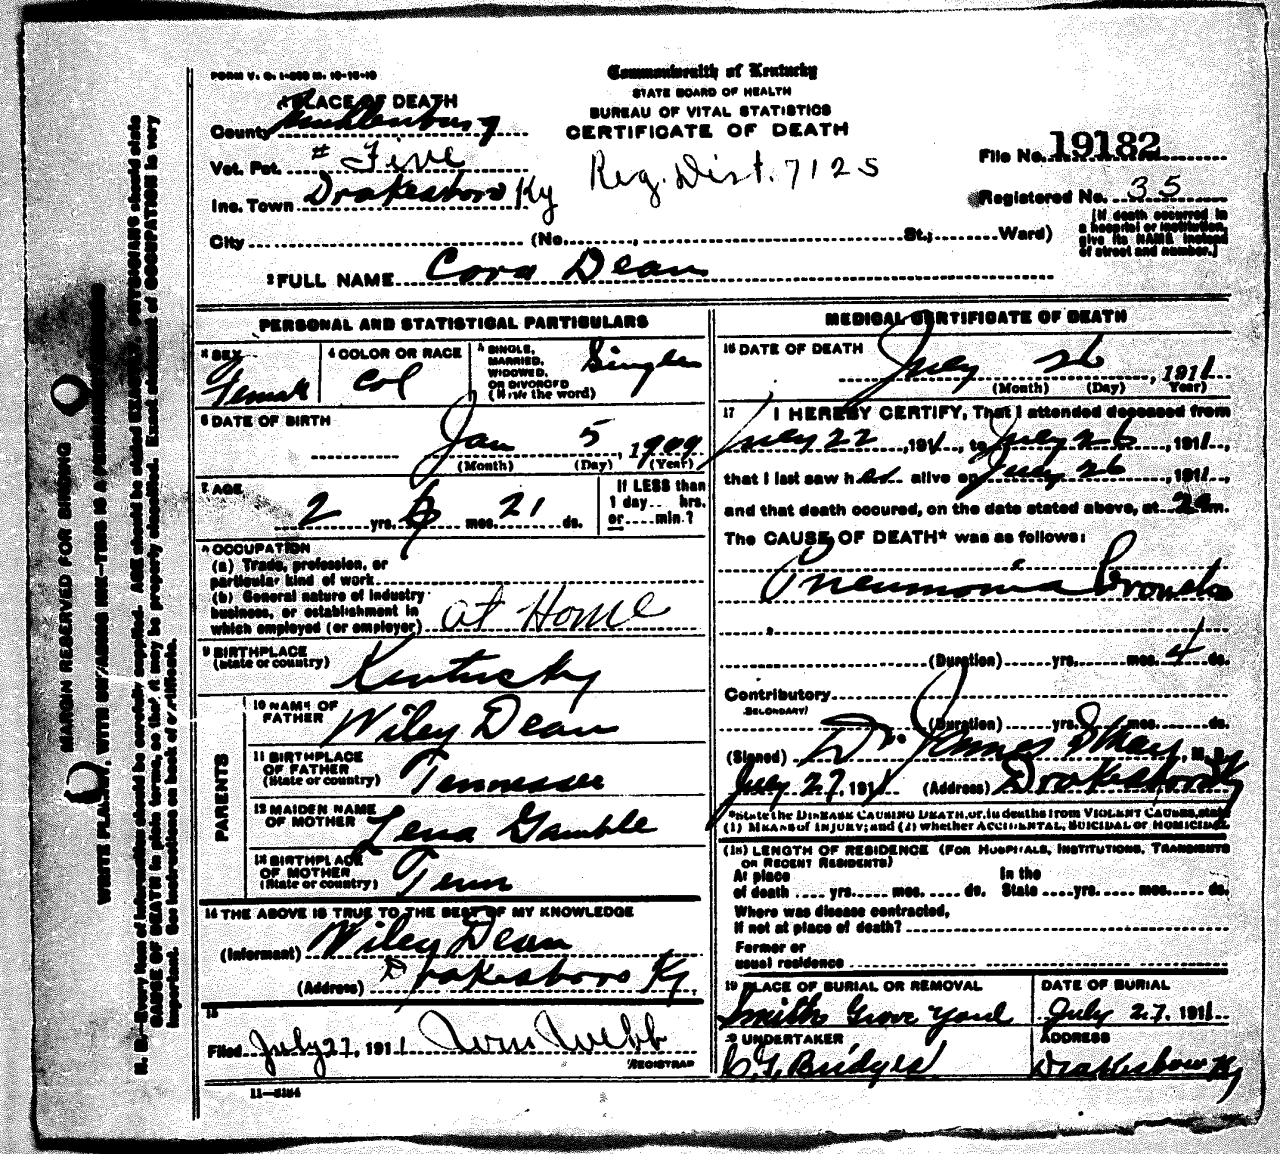 FORM V. S. 1-
Commonwealth of Kentucky
STATE BOARD OF HEALTH
BUREAU OF VITAL STATISTICS
CERTIFICATE OF DEATH
1 PLACE OF DEATH
County Muhlenburg
Vot. Pct. # Five
Inc. Town Drakesboro Ky
Reg. Dist. 7125
File No. 19182
Registered No. 35
City (No. , St.; Ward)
[If death occurred in
a hospital or institution,
give its NAME instead
of street and number.]
2 FULL NAME Cora Dean
PERSONAL AND STATISTICAL PARTICULARS
3 SEX Female
4 COLOR OR RACE Col
5 SINGLE,
MARRIED,
WIDOWED,
OR DIVORCED
(Write the word)
Single
6 DATE OF BIRTH
Jan 5, 1909
(Month) (Day) (Year)
7 AGE
2 yrs. 6 mos. 21 ds.
If LESS than
1 day.... hrs.
or.....min.?
8 OCCUPATION
(a) Trade, profession, or
particular kind of work
(b) General nature of industry
business, or establishment in
which employed (or employer) at Home
9 BIRTHPLACE
(State or country) Kentucky
PARENTS
10 NAME OF
FATHER Wiley Dean
11 BIRTHPLACE
OF FATHER
(State or country) Tennessee
12 MAIDEN NAME
OF MOTHER Lena Gamble
13 BIRTHPLACE
OF MOTHER
(State or country) Tenn
14 THE ABOVE IS TRUE TO THE BEST OF MY KNOWLEDGE
(Informant) Wiley Dean
(Address) Drakesboro Ky
15
Filed July 27, 1911 Wm Webb
REGISTRAR
11—3184
MEDICAL CERTIFICATE OF DEATH
16 DATE OF DEATH
July 26, 1911
(Month) (Day) (Year)
17 I HEREBY CERTIFY, That I attended deceased from
July 22, 1911, to July 26, 1911,
that I last saw her alive on July 26, 1911,
and that death occured, on the date stated above, at 2a m.
The CAUSE OF DEATH* was as follows:
Pneumonia Broncho
(Duration) yrs. mos. 4 ds.
Contributory
(SECONDARY)
(Duration) yrs. mos. ds.
(Signed) Dr. James, M. D.
July 27, 1911 (Address) Drakesboro Ky
*State the DISEASE CAUSING DEATH, or, in deaths from VIOLENT CAUSES, state
(1) MEANS of INJURY; and (2) whether ACCIDENTAL, SUICIDAL or HOMICIDAL.
(18) LENGTH OF RESIDENCE (FOR HOSPITALS, INSTITUTIONS, TRANSIENTS
OR RECENT RESIDENTS)
At place In the
of death .... yrs..... mos. .... ds. State ....yrs. .... mos..... ds.
Where was disease contracted,
if not at place of death?
Former or
usual residence
19 PLACE OF BURIAL OR REMOVAL
Smiths Grove Yard
DATE OF BURIAL
July 27, 1911
UNDERTAKER
C. T. Bridges
ADDRESS
Drakesboro Ky
MARGIN RESERVED FOR BINDING
WRITE PLAINLY, WITH UNFADING INK—THIS IS A PERMANENT
N. B.—Every item of information should be carefully supplied. AGE should be stated EXACTLY. PHYSICIANS should state
CAUSE OF DEATH in plain terms, so that it may be properly classified. Exact statement of OCCUPATION is very
important. See instructions on back of certificate.